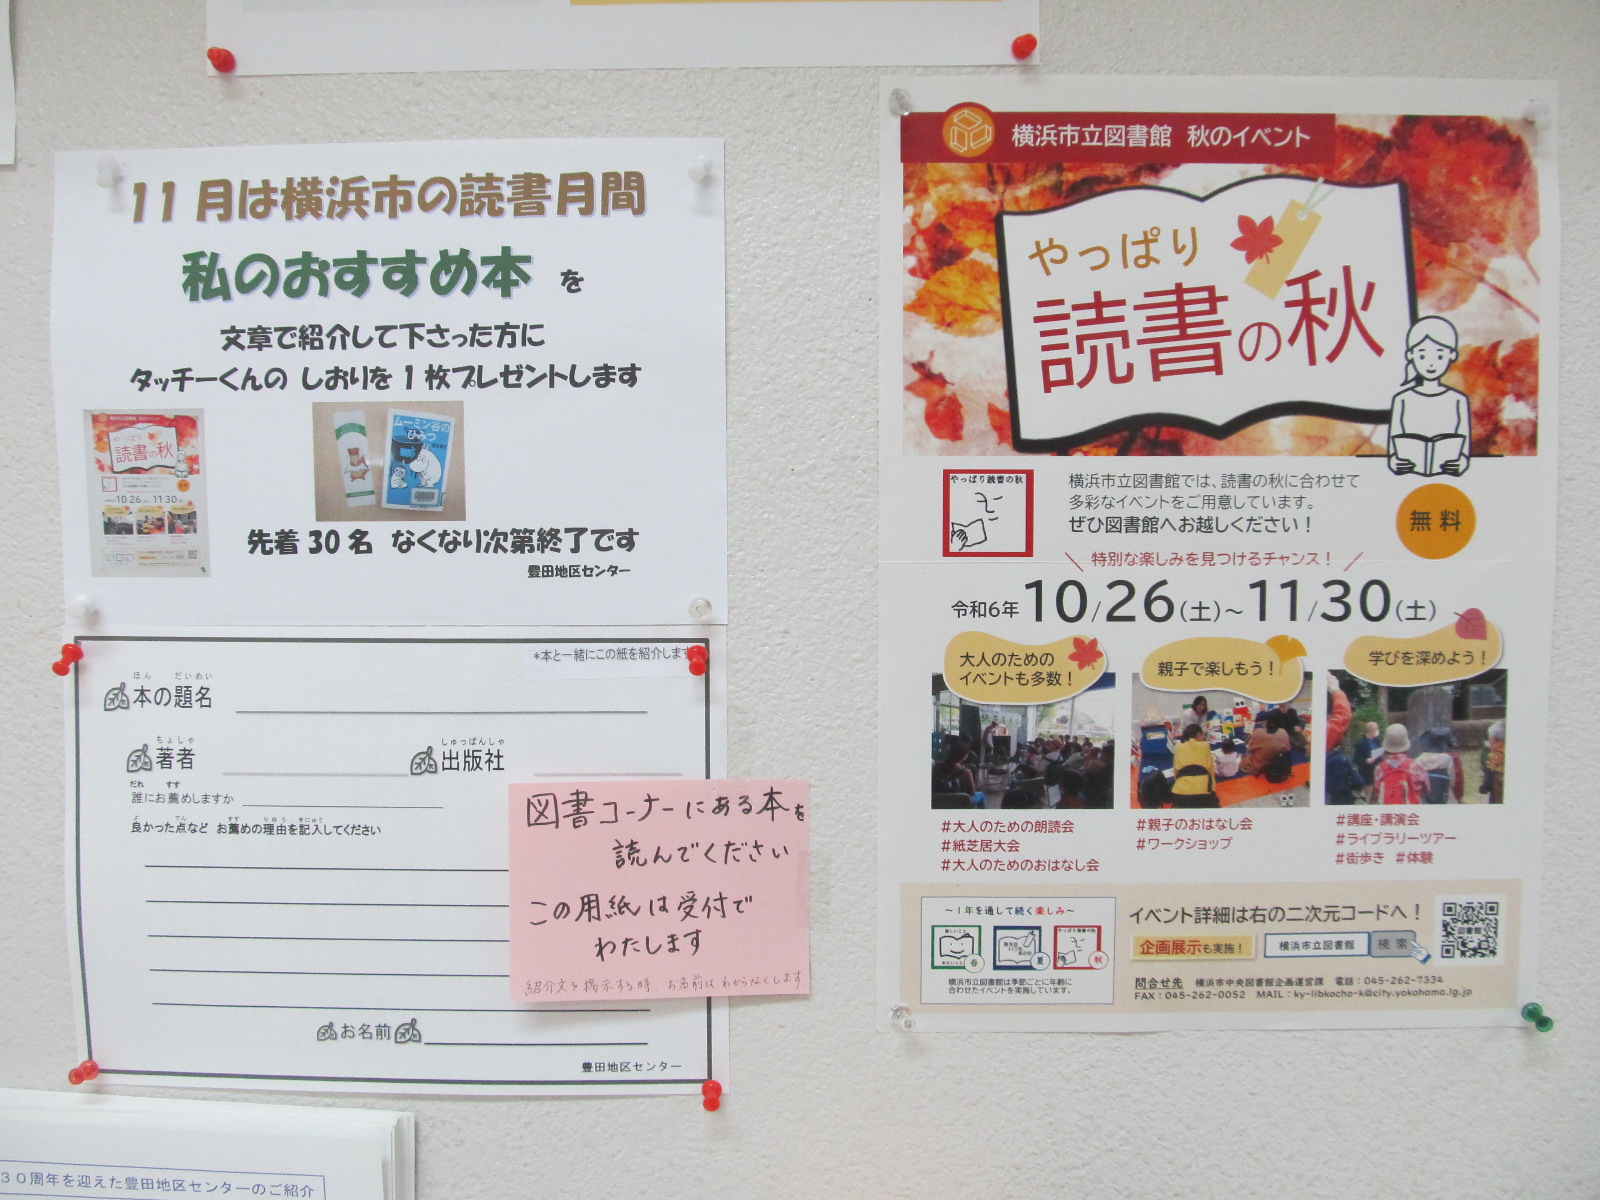 11月は横浜市の読書月間
私のおすすめ本 を
文章で紹介して下さった方に
タッチーくんの しおりを1枚プレゼントします
やっぱり
読書の秋
10 26 11 30
ムーミン谷の
ひみつ
先着30名 なくなり次第終了です
豊田地区センター
*本と一緒にこの紙を紹介します
ほん だいめい
本の題名
ちょしゃ
著者
しゅっぱんしゃ
出版社
だれ すす
誰にお薦めしますか
よ てん すす りゆう きにゅう
良かった点など お薦めの理由を記入してください
図書コーナーにある本を
読んでください
この用紙は受付で
わたします
紹介文を掲示する時、お名前はわからなくします
お名前
豊田地区センター
30周年を迎えた豊田地区センターのご紹介
横浜市立図書館 秋のイベント
やっぱり
読書の秋
やっぱり読書の秋
横浜市立図書館では、読書の秋に合わせて
多彩なイベントをご用意しています。
ぜひ図書館へお越しください！
無料
特別な楽しみを見つけるチャンス！
令和6年 10/26(土)～11/30(土)
大人のための
イベントも多数！
親子で楽しもう！
学びを深めよう！
#大人のための朗読会
#紙芝居大会
#大人のためのおはなし会
#親子のおはなし会
#ワークショップ
#講座・講演会
#ライブラリーツアー
#街歩き #体験
～1年を通して続く楽しみ～
春
夏
やっぱり読書の秋
秋
横浜市立図書館は季節ごとに年齢に
合わせたイベントを実施しています。
イベント詳細は右の二次元コードへ！
企画展示も実施！
横浜市立図書館 検索
図書館
問合せ先 横浜市中央図書館企画運営課 電話：045-262-7334
FAX：045-262-0052 MAIL：ky-libkocho-k@city.yokohama.lg.jp